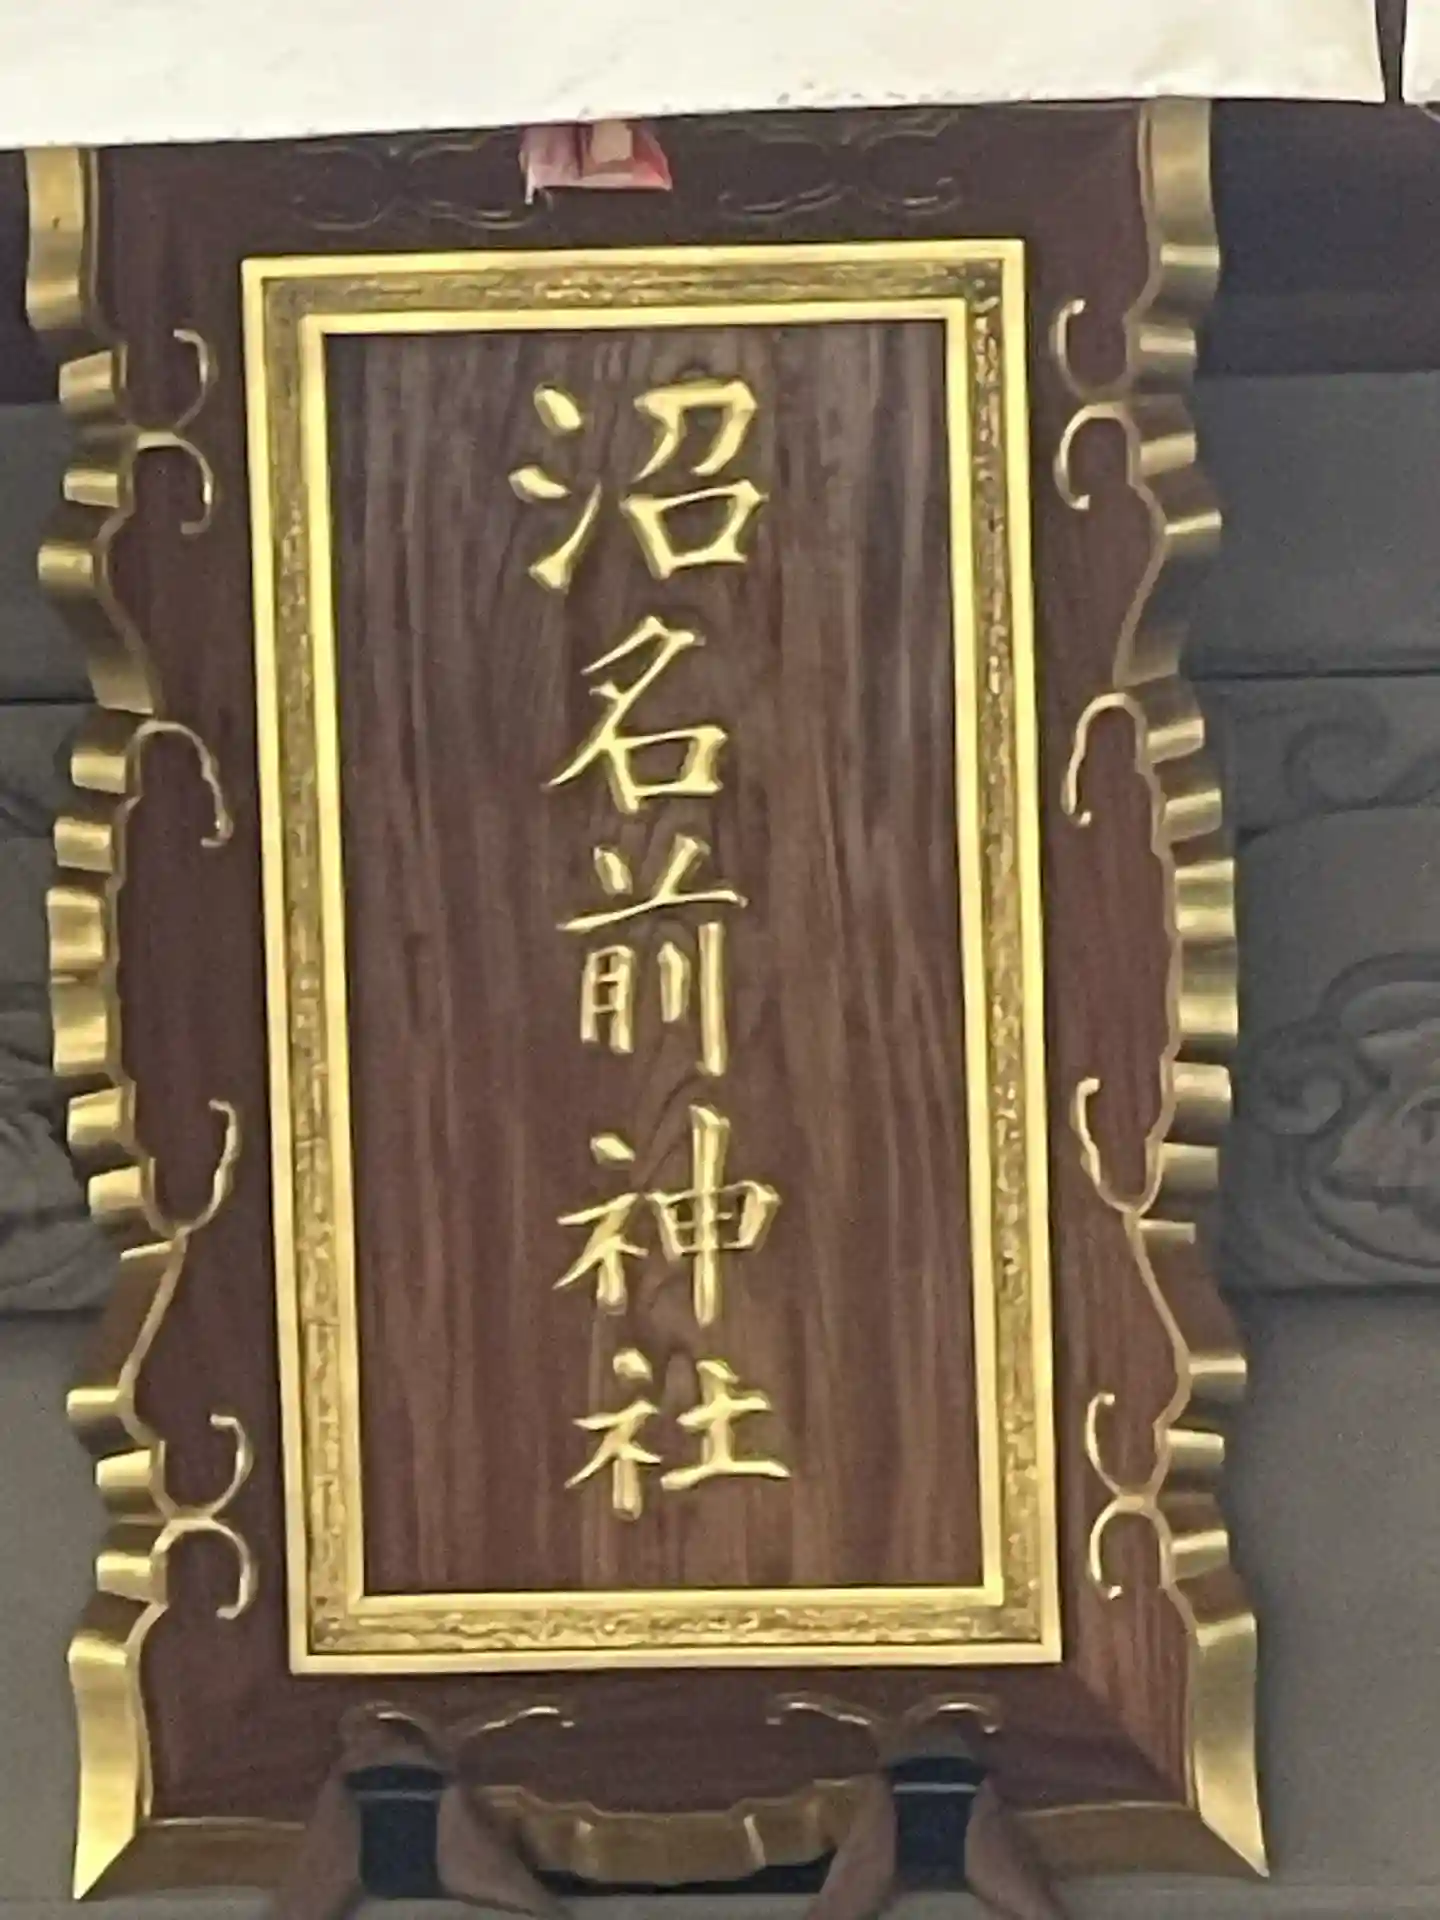 沼名前神社